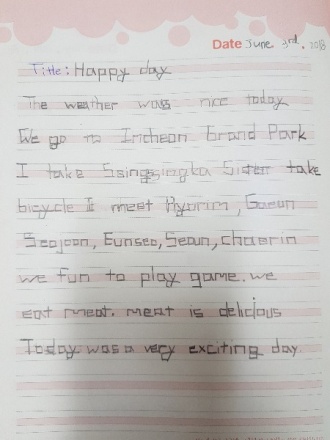 Date June 3rd. 2018
Title: Happy day
The weather was nice today
We go to Incheon Grand Park
I take Ssingssingka Sister take
bicycle I meet Hyorim, Gaeun
Seojoon, Eunseo, Seoun, chaerin
we fun to play game. we
eat meat. meat is delicious
Today was a very exciting day.